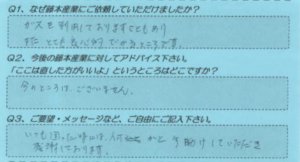 Q1、なぜ藤本産業にご依頼していただけましたか?
ガスを利用しておりますこともあり
また とても安心 できるところです。
Q2、今後の藤本産業に対してアドバイス下さい。
「ここは直した方がいいよ」というところはどこですか?
今のところは ございません。
Q3、ご要望・メッセージなど、ご自由にご記入下さい。
いつも困った時には、 かと 手助けしていただき
感謝しております。